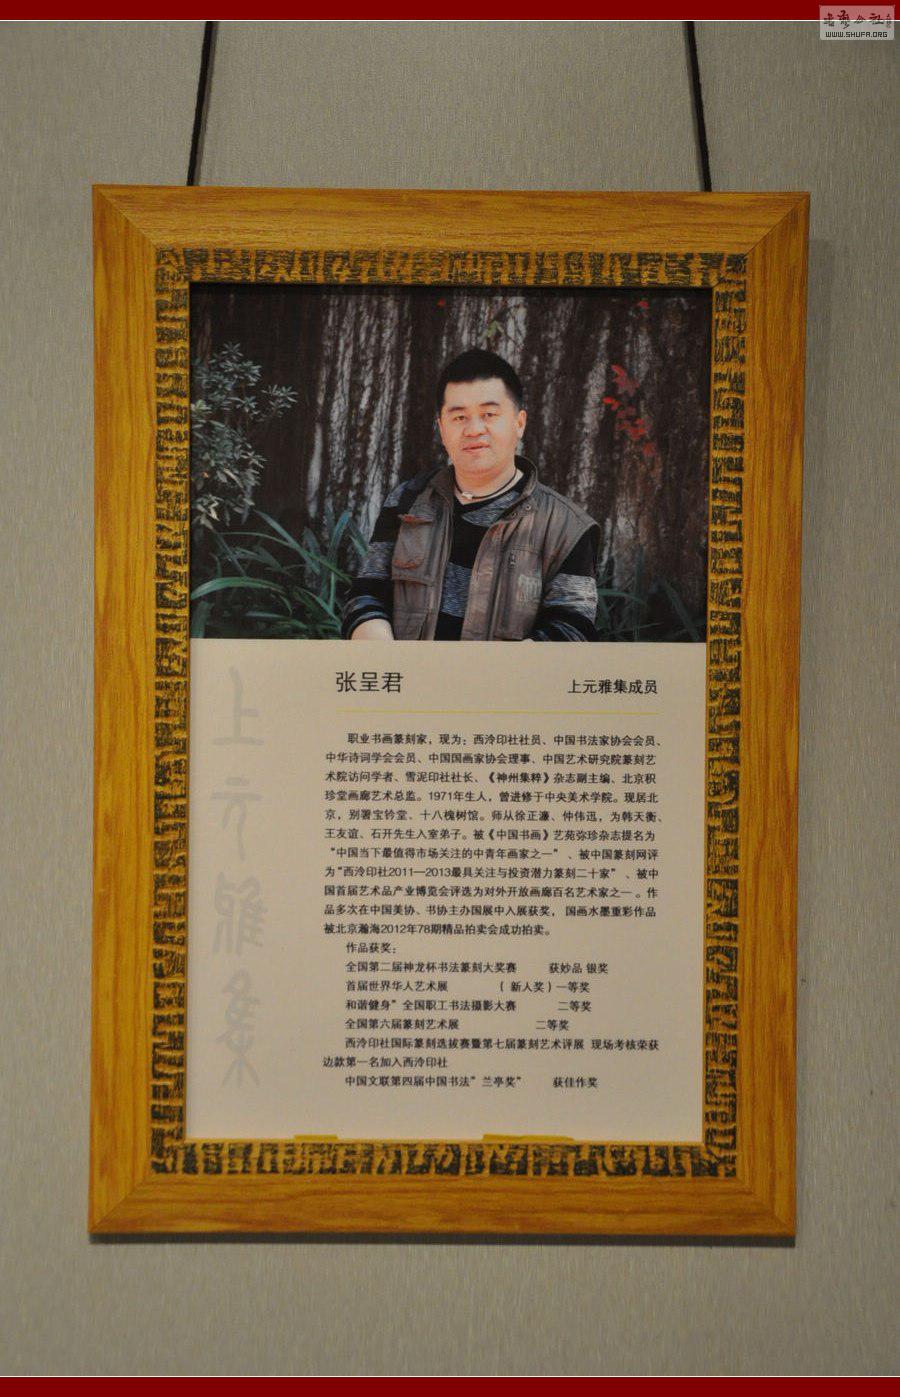 WWW.SHUFA.ORG
张呈君
上元雅集成员
上元雅集
职业书画篆刻家，现为：西泠印社社员、中国书法家协会会员、
中华诗词学会会员、中国国画家协会理事、中国艺术研究院篆刻艺
术院访问学者、雪泥印社社长、《神州集粹》杂志副主编、北京积
珍堂画廊艺术总监。1971年生人，曾进修于中央美术学院。现居北
京，别署宝铃堂、十八槐树馆。师从徐正濂、仲伟迅，为韩天衡、
王友谊、石开先生入室弟子。被《中国书画》艺苑弥珍杂志提名为
“中国当下最值得市场关注的中青年画家之一” 、被中国篆刻网评
为“西泠印社2011—2013最具关注与投资潜力篆刻二十家” 、被中
国首届艺术品产业博览会评选为对外开放画廊百名艺术家之一 。作
品多次在中国美协、书协主办国展中入展获奖， 国画水墨重彩作品
被北京瀚海2012年78期精品拍卖会成功拍卖。
作品获奖：
全国第二届神龙杯书法篆刻大奖赛 获妙品 银奖
首届世界华人艺术展 （ 新人奖 ）一等奖
和谐健身” 全国职工书法摄影大赛 二等奖
全国第六届篆刻艺术展 二等奖
西泠印社国际篆刻选拔赛暨第七届篆刻艺术评展 现场考核荣获
边款第一名加入西泠印社
中国文联第四届中国书法” 兰亭奖” 获佳作奖